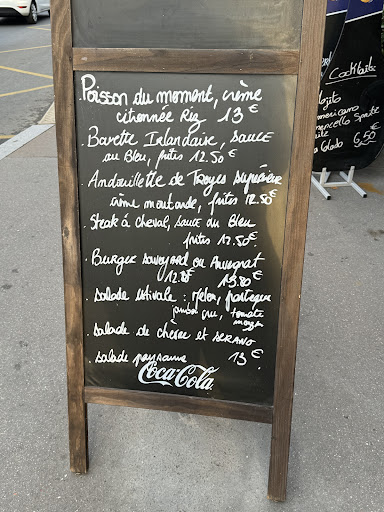 Poisson du moment, crème
citronnée Riz 13€
Bavette Irlandaise, sauce
au Bleu, frites 12.50€
Andouillette de Troyes supérieure
crème moutarde, frites 12.50€
Steak à cheval, sauce au Bleu
frites 12.50€
Burger savoyard ou Auvergnat
12.80€ 13.80€
salade estivale : Melon, pasteque
jambon cru, tomate
mozza
salade de chèvre et SERANO
salade paysanne 13€
Coca-Cola
Cocktails
Mojito
Americano
Spritz
Colada 6,50€